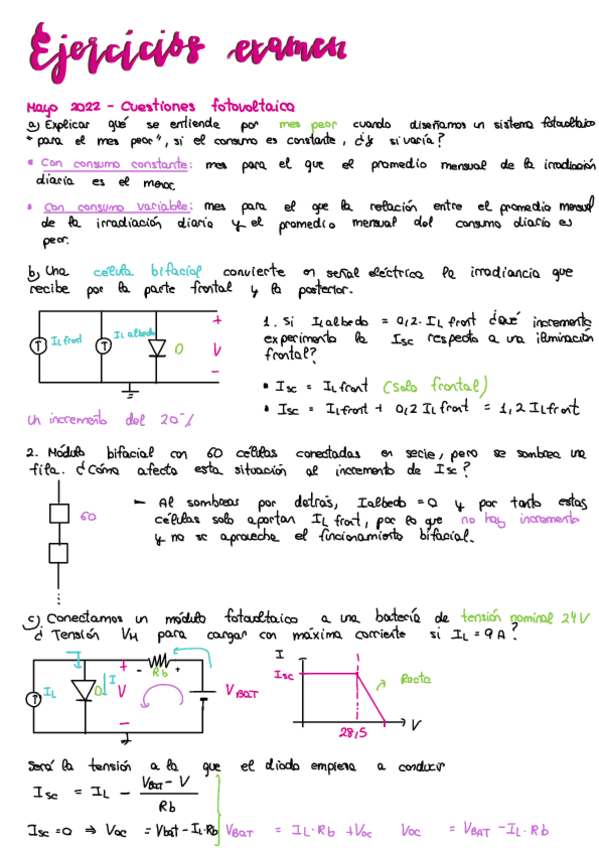 Ejercicios examen
Mayo 2022 - Cuestiones fotovoltaica
a) Explicar qué se entiende por mes peor cuando diseñamos un sistema fotovoltaico
"para el mes peor", si el consumo es constante, ¿y si varía?
• Con consumo constante: mes para el que el promedio mensual de la irradiación
diaria es el menor.
• Con consumo variable: mes para el que la relación entre el promedio mensual
de la irradiación diaria y el promedio mensual del consumo diario es
peor.
b) Una célula bifacial convierte en señal eléctrica la irradiancia que
recibe por la parte frontal y la posterior.
IL front
IL albedo
D
+
V
-
1. Si ILalbedo = 0,2 · IL front ¿Qué incremento
experimenta la Isc respecto a una iluminación
frontal?
• Isc = ILfront (solo frontal)
• Isc = ILfront + 0,2 ILfront = 1,2 ILfront
Un incremento del 20%
2. Módulo bifacial con 60 células conectadas en serie, pero se sombrea una
fila. ¿Cómo afecta esta situación al incremento de Isc?
60
- Al sombrear por detrás, Ialbedo = 0 y por tanto estas
células solo aportan IL front, por lo que no hay incremento
y no se aprovecha el funcionamiento bifacial.
c) Conectamos un módulo fotovoltaico a una batería de tensión nominal 24V
¿Tensión VM para cargar con máxima corriente si IL = 9A?
IL
D
I
+
V
-
- Rb +
VBAT
I
Isc
Recta
28,5
V
Será la tensión a la que el diodo empieza a conducir
Isc = IL - (VBAT - V) / Rb
Isc = 0 ⇒ Voc = Vbat - IL·Rb VBAT = IL·Rb + Voc Voc = VBAT - IL·Rb